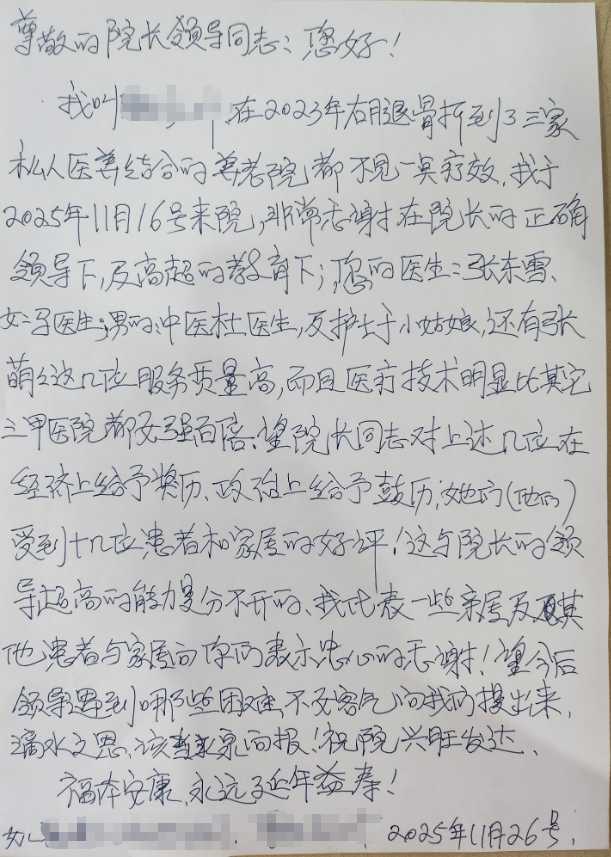 尊敬的院长领导同志:您好!
我叫 在2023年右腿骨折到了三家
私人医养结合的养老院都不见一点疗效,我于
2025年11月16号来院,非常感谢在院长的正确
领导下,及高超的教育下;您的医生:张东雪、
女:子医生;男的:中医杜医生,及护士于小姑娘,还有张
萌:这几位服务质量高,而且医疗技术明显比其它
三甲医院都要强百倍、望院长同志对上述几位在
经济上给予奖历、政治上给予鼓历;她们(他们)
受到十几位患者和家属的好评!这与院长的领
导超高的能力是分不开的、我代表一些亲属及其
他患者与家属向你们表示忠心的感谢!望今后
领导遇到哪些困难不要客气向我们提出来,
滴水之恩,该当涌泉回报!祝院兴旺发达、
福体安康,永远延年益寿!
2025年11月26号,